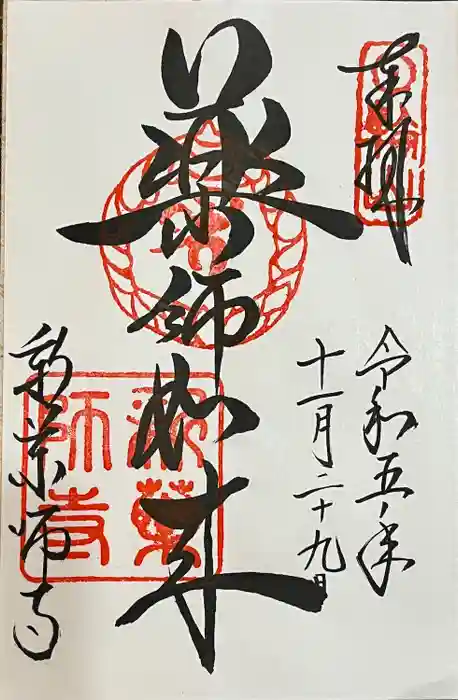 奉拝
令和五年
十一月二十九日
薬師如来
新薬師寺
新薬師寺